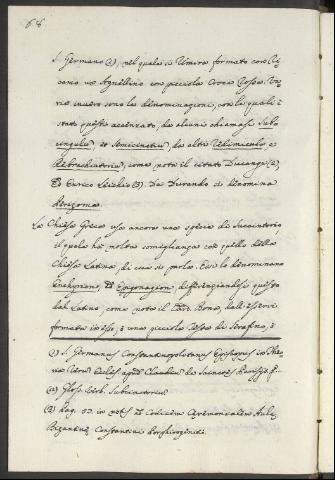 68
S. Germano (1), nel quale si rimira formato con Ri,
camo un Agnellino con picciola Croce rossa. Va,
rie invero sono le denominazioni, con le quali è
stato questo accennato, da alcuni chiamasi Sub,
cingulum, et Amicinctium, da altri
Rebrachiatorium, come nota il citato Ducange (2),
Ed Enrico (3). Da Durando si denomina
Perizoma.
La Chiesa Greca usa ancora una specie di Succintorio,
il quale ha molta somiglianza con quello della
Chiesa Latina, di cui si parla. Essi lo denominano
ed Epigonation; differenziandosi questo
dal Latino, come nota il Card. Bona, dall'esservi
formata in esso, o una picciola Testa di Serafino, o
(1) S. Germanus Constantinopolitanus Episcopus in
apud Claudium de Sainctes
(2) Gloss. verb. Subcinctorium
(3) Pag. in notis ad codicem Ceremonialem Aulæ
Bizantinæ Constantini Porphirogeniti.